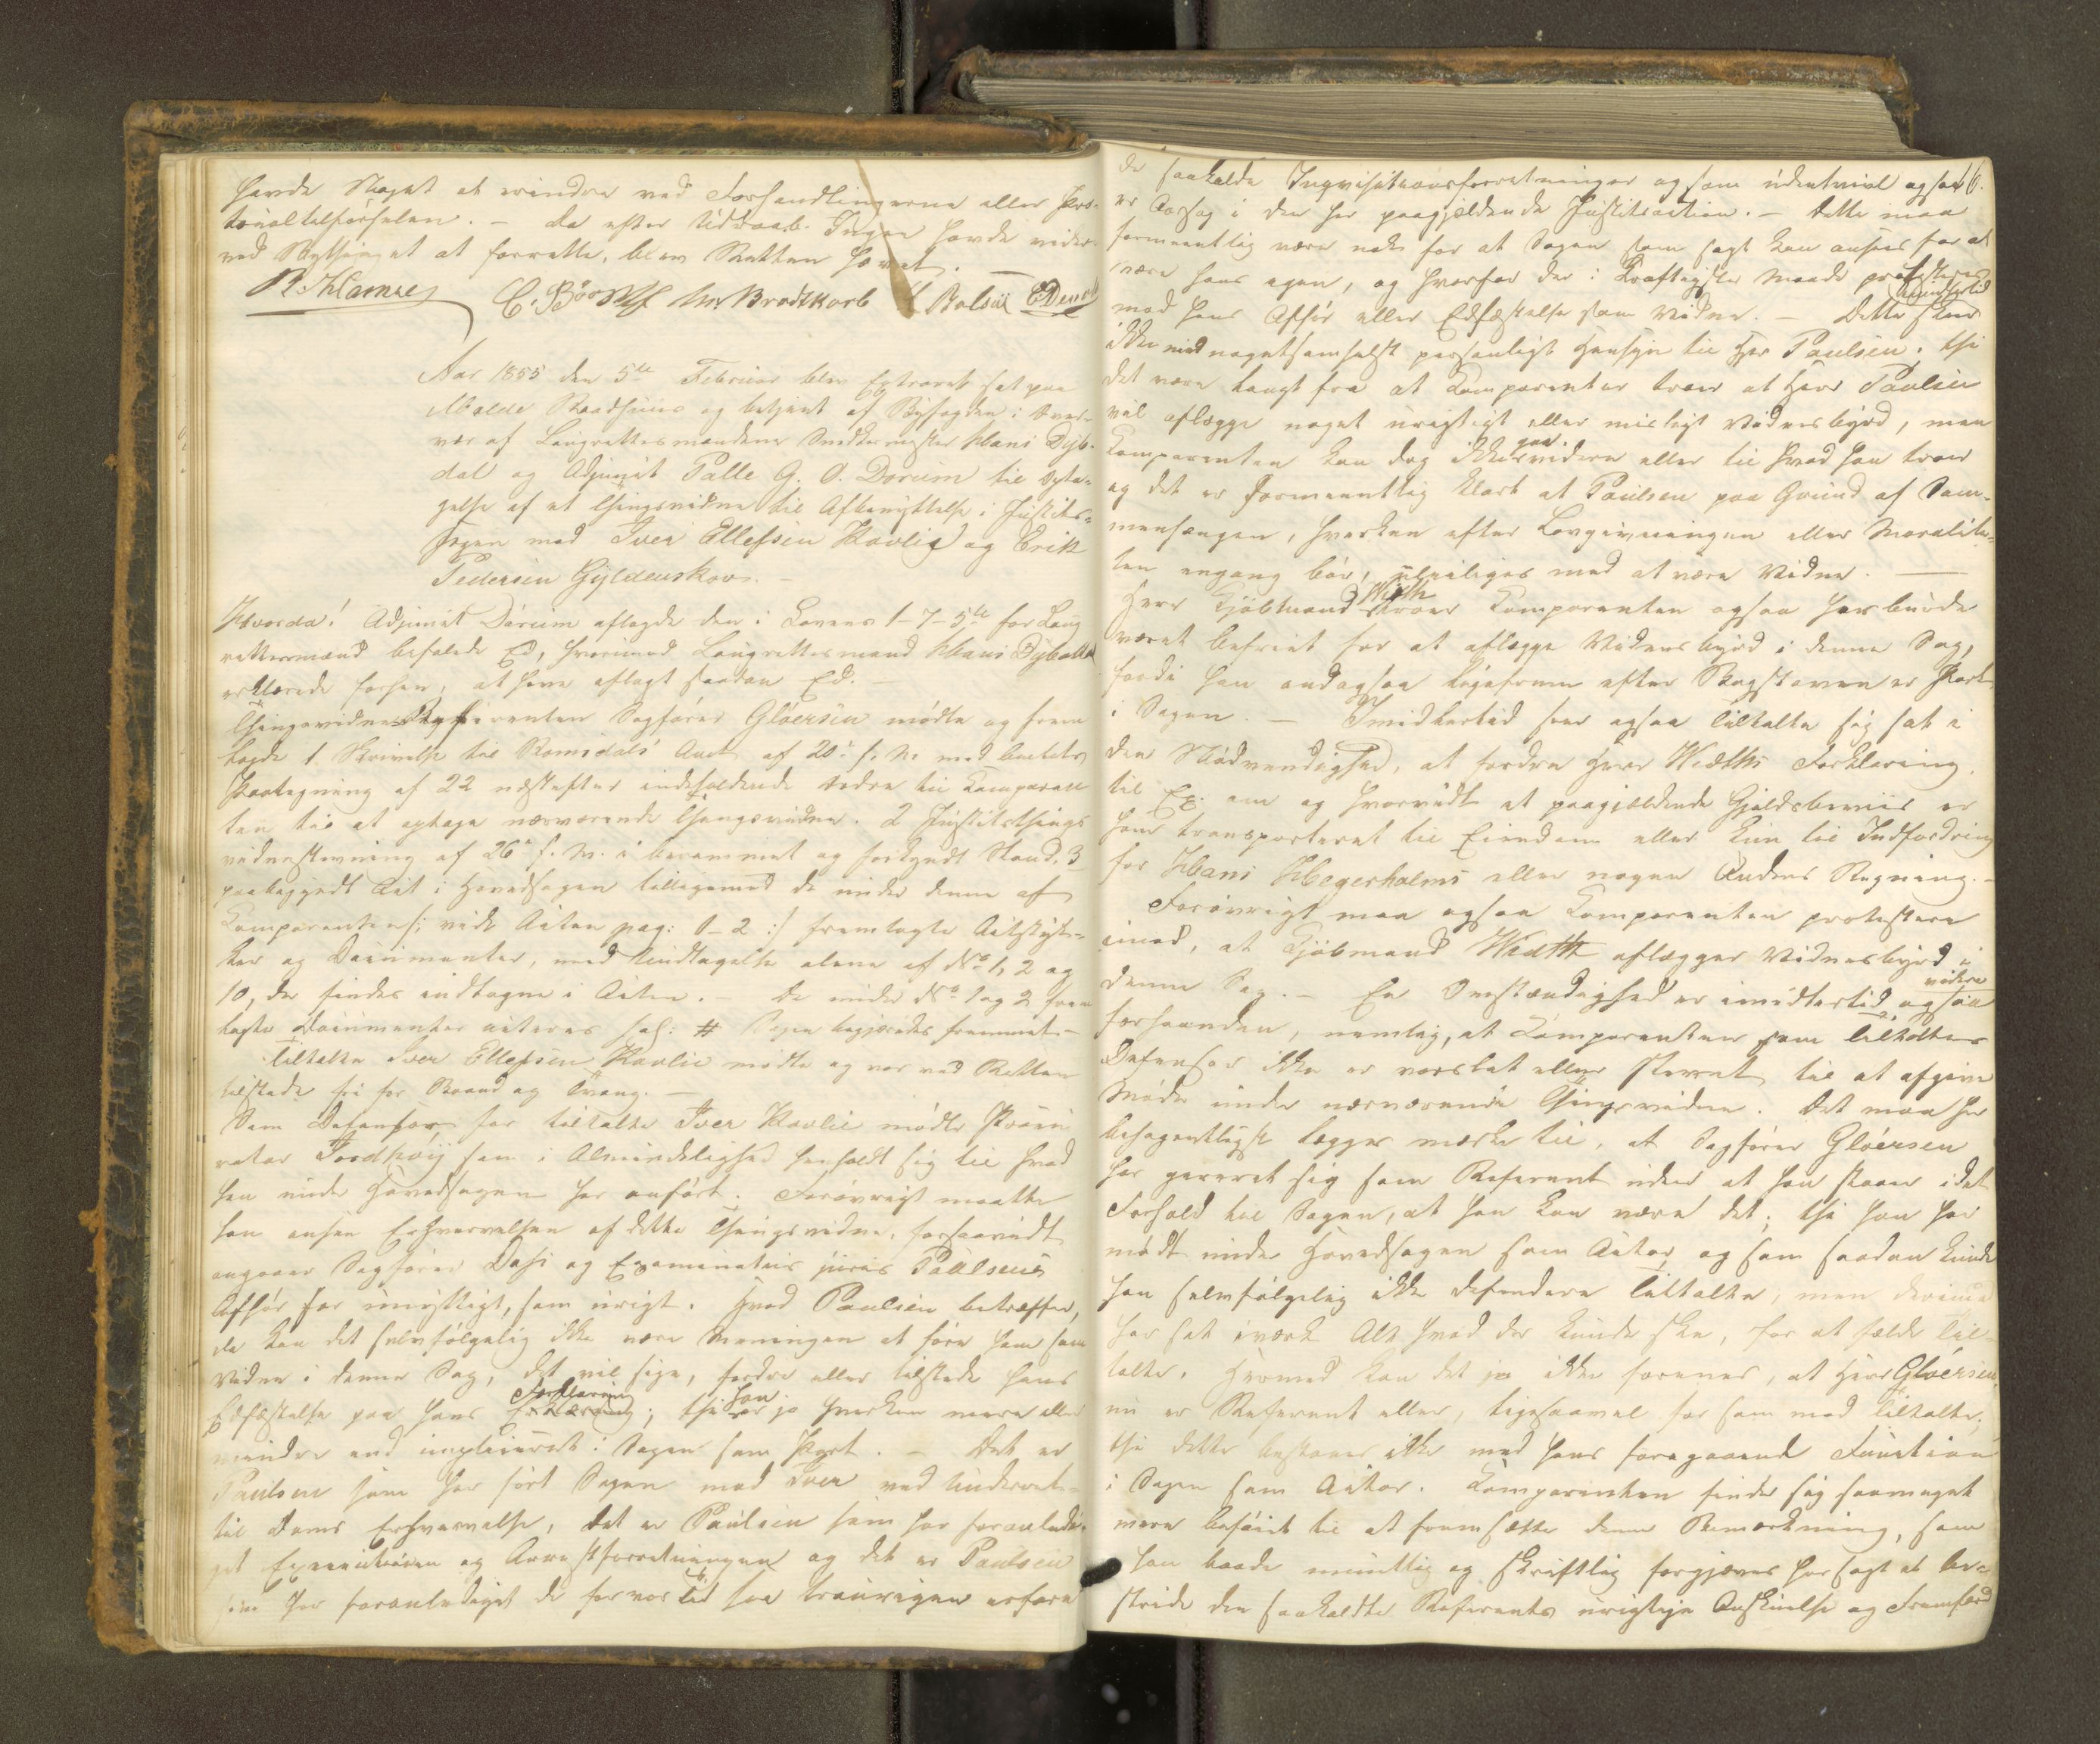 havde Noget at erindre ved Forhandlingerne eller Pro-
tocoltilførselen. – Da efter Udraab Ingen havde videre
ved Bythinget at forrette, blev Retten hævet. –
C. Bóe M. Brodtkorb
Aar 1855 den 5te Februar blev Extraret sat paa
Molde Raadhuus og betjent af Byfogden i Over-
vær af Laugrettesmændene Snedkermester Hans Dyb-
dal og Adjunct Palle G. O. Dorum til Opta-
gelse af et Thingsvidne til Afbenyttelse i Justits-
sagen mod Iver Ellefsen Havlie og Erik
Pedersen Gyldenskov. –
Hvorda! Adjunct Dorum aflagde den i Lovens 1-7-5te for Laug
rettesmænd befalede Ed, hvorimod Laugrettesmand Hans Dybdal
erklærede forhen, at have aflagt saadan Ed. –
Thingsvidne Sagfører Gløersen mødte og frem
lagde 1 Skrivelse til Romsdals Amt af 20de f. M. med Amtets
Paategning af 22 næstefter indeholdende Ordre til Comparen
ten til at optage nærværende Thingsvidne. 2 Justitsthings
vidnestevning af 26de f. M. i berammet og forkyndt Stand. 3
paabegyndt Act i Hovedsagen tilligemed de under denne af
Comparenten /: vide Acten pag: 1-2 :/ fremlagte Actstyk-
ker og Documenter, med Undtagelse alene af No 1, 2 og
10, der findes indtagne i Acten. – De under No 1 og 2 frem
lagte Documenter acteres saal: # Sagen begjæredes fremmet. –
Tiltalte Iver Ellefsen Havlie mødte og var ved Retten
tilstede fri for Baand og Tvang. –
Som Defensor for tiltalte Iver Havlie mødte Procu
rator som i Almindelighed henholdt sig til hvad
han under Hovedsagen har anført. Forøvrigt maatte
han ansee Erhvervelsen af dette Thingsvidne, forsaavidt
angaaer Sagfører Dahl og Examinatus juris Paulsens
Afhør for unyttigt, som urigt. Hvad Paulsen betræffer,
da kan det selvfølgelig ikke være Meningen at føre ham som
Vidne i denne Sag, det vil sige, fordre eller tilstede hans
Edfæstelse paa hans Forklaring; thi han er jo hverken mere eller
mindre end impliceret i Sagen som Part. – Det er
Paulsen som har ført Sagen mod Iver ved Underret-
til Doms Erhvervelse, det er Paulsen som har foranledi-
get Executionen og Arrestforretningen og det er Paulsen
som har foranlediget de for vor Tid saa traurigen erfare
16.
de saakaldte Inqvisitionsforretninger og som udentvivl ogsaa
er Aarsag i den her paagjældende Justitsaction. – Dette maa
formeentlig være nok for at Sagen som sagt kan ansees for at
være hans egen, og hvorfor der i kraftigste Maade protesteres
mod hans Afhør eller Edfæstelse som Vidne. – Dette skeer imidlertid
ikke med nogetsomhelst personligt Hensyn til Hr Paulsen, thi
det være langt fra at Comparenten troer at Herr Paulsen
vil aflægge noget urigtigt eller misligt Vidnesbyrd, men
Comparenten kan dog ikke gaa videre eller til hvad han troer
og det er formeentlig klart at Paulsen paa Grund af Sam-
menhængen, hverken efter Lovgivningen eller Moralite-
ten engang bør, uleiliges med at være Vidne. –
Herr Kjøbmand Wæth troer Comparenten ogsaa har burde
været befriet for at aflægge Vidnesbyrd i denne Sag,
fordi han endogsaa ligefrem efter Bogstaven er Part
i Sagen. – Imidlertid seer ogsaa Tiltalte sig sat i
den Nødvendighed, at fordre Herr Wæths Forklaring,
til Ex. om og hvorvidt at paagjældende Gjældsbeviis er
ham transporteret til Eiendom eller kun til Indfordring
for Hans Hegerholms eller nogen Andens Regning. –
Forøvrigt maa ogsaa Comparenten protestere
imod, at Kjøbmand Wæth aflægger Vidnesbyrd i
denne Sag. – En Omstændighed er imidlertid videre ogsaa
forhaanden, nemlig, at Comparenten som Tiltaltes
Defensor ikke er varslet eller stevnet til at afgive
Møde under nærværende Thingsvidne. Det maa her
besynderligst lægges mærke til, at Sagfører Gløersen
har gereret sig som Referent uden at han staaer i det
Forhold til Sagen, at han kan være det; thi han har
mødt under Hovedsagen som Actor og som saadan kunde
han selvfølgelig ikke defendere Tiltalte, men derimod
har sat iværk Alt hvad der kunde skee, for at fælde Til-
talte. Hermed kan det jo ikke forenes, at Herr Gløersen
nu er Referent eller, ligesaavel for som mod Tiltalte,
thi dette bestaaer ikke med hans foregaaende Function
i Sagen som Actor. Comparenten finder sig saameget
mere beføiet til at fremsætte denne Bemærkning, som
han baade mundtlig og skriftlig forgjæves har søgt at be-
stride den saakaldte Referents urigtige Anskuelse og Fremfærd